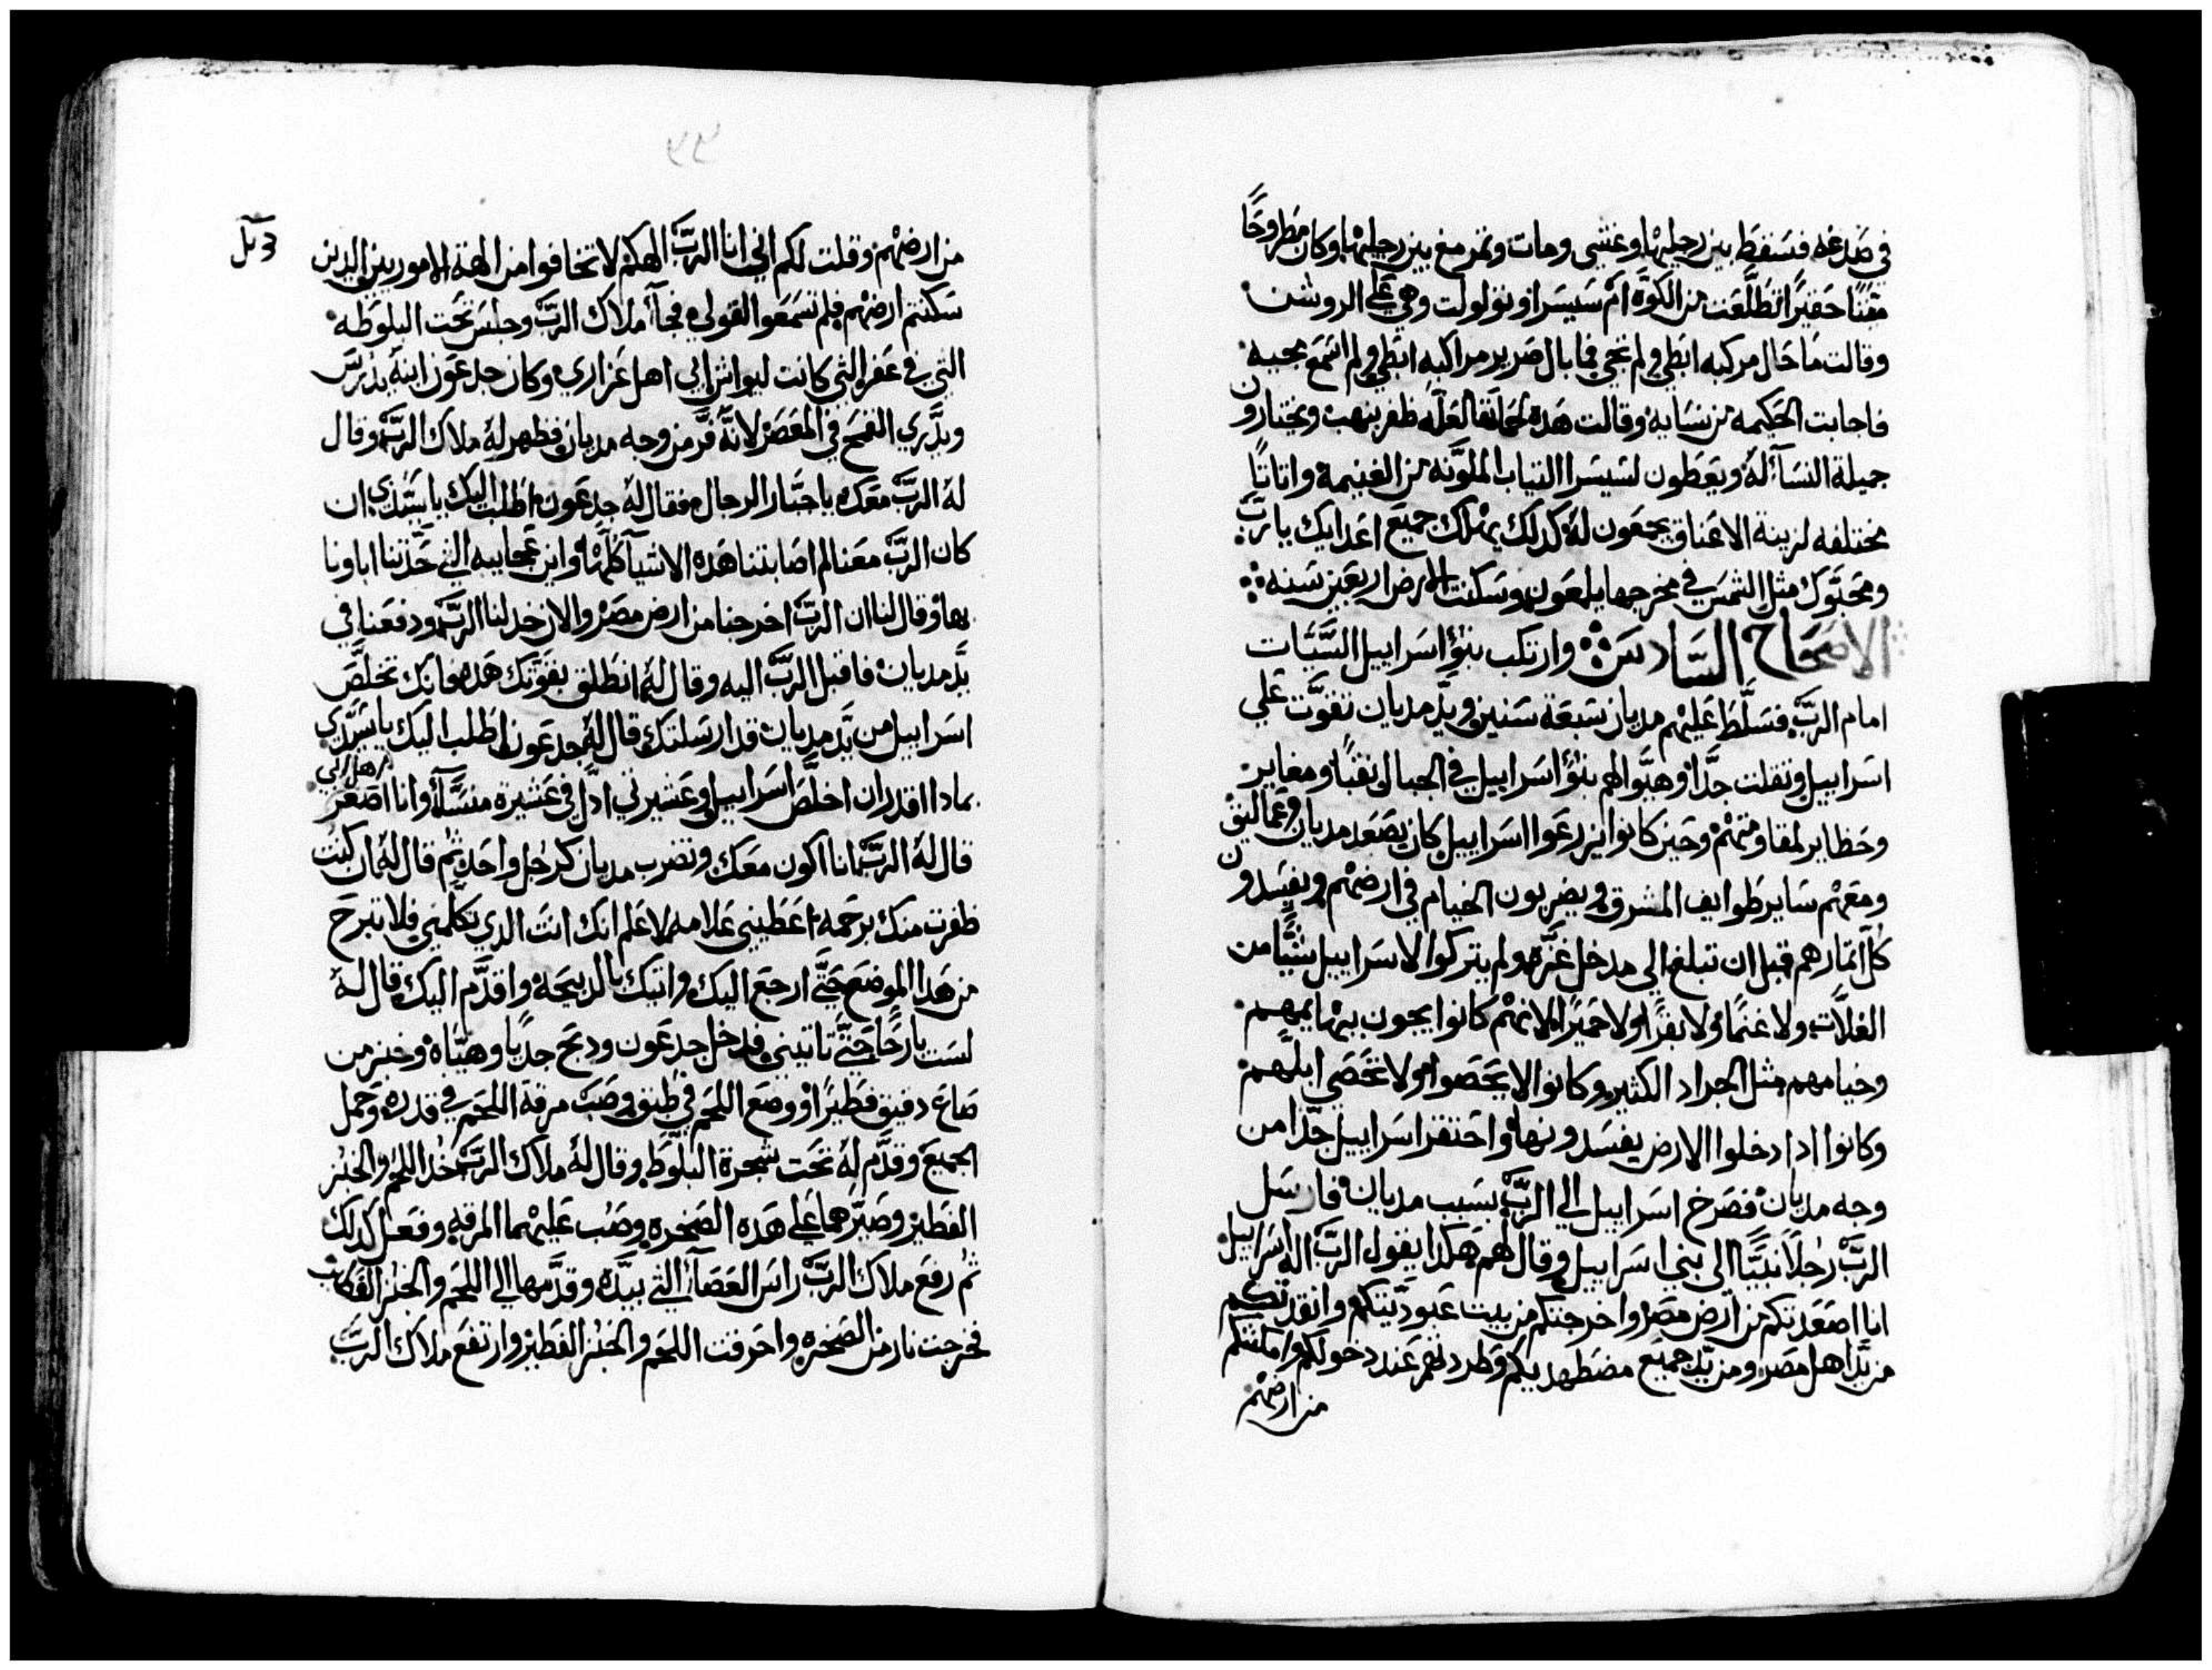 في صدغه فسقط بين رجليها وغشى ومات وتمرمغ بين رجليها وكان مطروحًا
حقيرًا تطلعت من الكوّه امّ سيسرا وولولت وهي على الروشن
وقالت ما حال مركبه ابطى ولم تجي فما بال صرير مراكبه ابطي ولم اسمع مجيه
فاجابت الحكيمه من نسايه وقالت هده لحماتها لعلّه ظفر بنهب ويختارون
جميلة النسآ لهُ ويعطون لسيسرا التياب الملوّنه من الغنيمة واتاتًا
مختلفه لزينة الاعناق يجمعون لهُ كدلك يهلك جميع اعدايك يا ربّ
ومحبّوك مثل الشمس في مخرجها يلمعون وسكنت الارض اربعين سنه
الاصحاح السّادس وارتكب بنوُا اسراييل السّيّات
امام الربّ فسلّط عليهم مديان سبعة سنين ويدّ مديان تقوّت على
اسراييل وتقلت جدًّا وهيّوا لهم بنوُا اسراييل في الجبال نقبًا ومغاير
وحظاير لمقاومتهم وحين كانوا يزرعوا اسراييل كان يصعد مديان وعماليق
ومعهم ساير طوايف المشرق ويضربون الخيام في ارضهم ويفسدون
كل اتمارهم قبل ان تبلغ الي مدخل غزّه ولم يتركوا لاسراييل شيًّا من
الغلّات ولا غنمًا ولا بقرًا ولا حميرًا لانهم كانوا يجون ببهايمهم
وخيامهم مثل الجراد الكثير وكانوا لا يحصوا ولا تحصي ابلهم
وكانوا ادا دخلوا الارض يفسدونها واحتقر اسراييل جدّا من
وجه مديان فصرخ اسراييل الي الربّ بسبب مديان فارسل
الربّ رجلًا نبيًّا الى بني اسراييل وقال لهم هكدا يقول الربّ اله اسراييل
انا اصعدتكم من ارض مصر واخرجتكم من بيت عبودّيتكم وانقدتكم
من يدّ اهل مصر ومن يدّ جميع مضطهديكم وطردتهم عند دخولكم وملكتكم
من ارضهم
من ارضهم وقلت لكم اني انا الربّ الهكم لا تخافوا من الهة الاموريين الدين
سكنتم ارضهم فلم تسمعوا لقولي فجآ ملاك الربّ وجلس تحت البلوطه
التي في عفرا التي كانت ليواش ابي اهل عزاري وكان جدعون ابنهُ يدرس
ويدّري القمح في المعصر لانهُ فرّ من وجه مديان فظهر لهُ ملاك الربّ وقال
لهُ الربّ معك يا جبّار الرجال فقال لهُ جدعون اطلب اليك يا سيّدي ان
كان الربّ معنا لم اصابتنا هده الاشيآ كلّها واين عجايبه التي حدّتنا اباونا
بها وقال لنا ان الربّ اخرجنا من ارض مصر والان خدلنا الربّ ودفعنا في
يدّ مديان فاقبل الربّ اليه وقال لهُ انطلق بقوّتك هده فانك تخلّص
اسراييل من يدّ مديان قد ارسلتك قال لهُ جدعون اطلب اليك يا سيّدي
بمادا اقدر ان اخلّص اسراييل وعشيرتي ادلّ في عشيرة منسّآ وانا اصغر
قال لهُ الربّ انا اكون معك وتضرب مديان كرجل واحد ثم قال لهُ ان كنت
ظفرت منك برحمه اعطيني علامه لاعلم انك انت الدي تكلّمني فلا تبرح
من هدا الموضع حتّى ارجع اليك واتيك بالدبيحة واقدّم اليك قال لهُ
لست بارحًا حتّى تاتيني فدخل جدعون ودبح جديًا وهيّاهُ وخبز من
صاع دقيق فطيرًا ووضع اللحم في طبق وصبّ مرقة اللحم في قدره وحمل
الجميع وقدّم لهُ تحت شجرة البلّوط وقال لهُ ملاك الربّ خد اللحم والخبز
الفطير وصيّرهما على هده الصخره وصب عليهما المرقه وفعل كدلك
ثم رفع ملاك الربّ راس العصآ التي بيدّه وقدّمها الى اللحم والخبز
فخرجت نار من الصخره واحرقت اللحم والخبز الفطير وارتفع ملاك الربّ